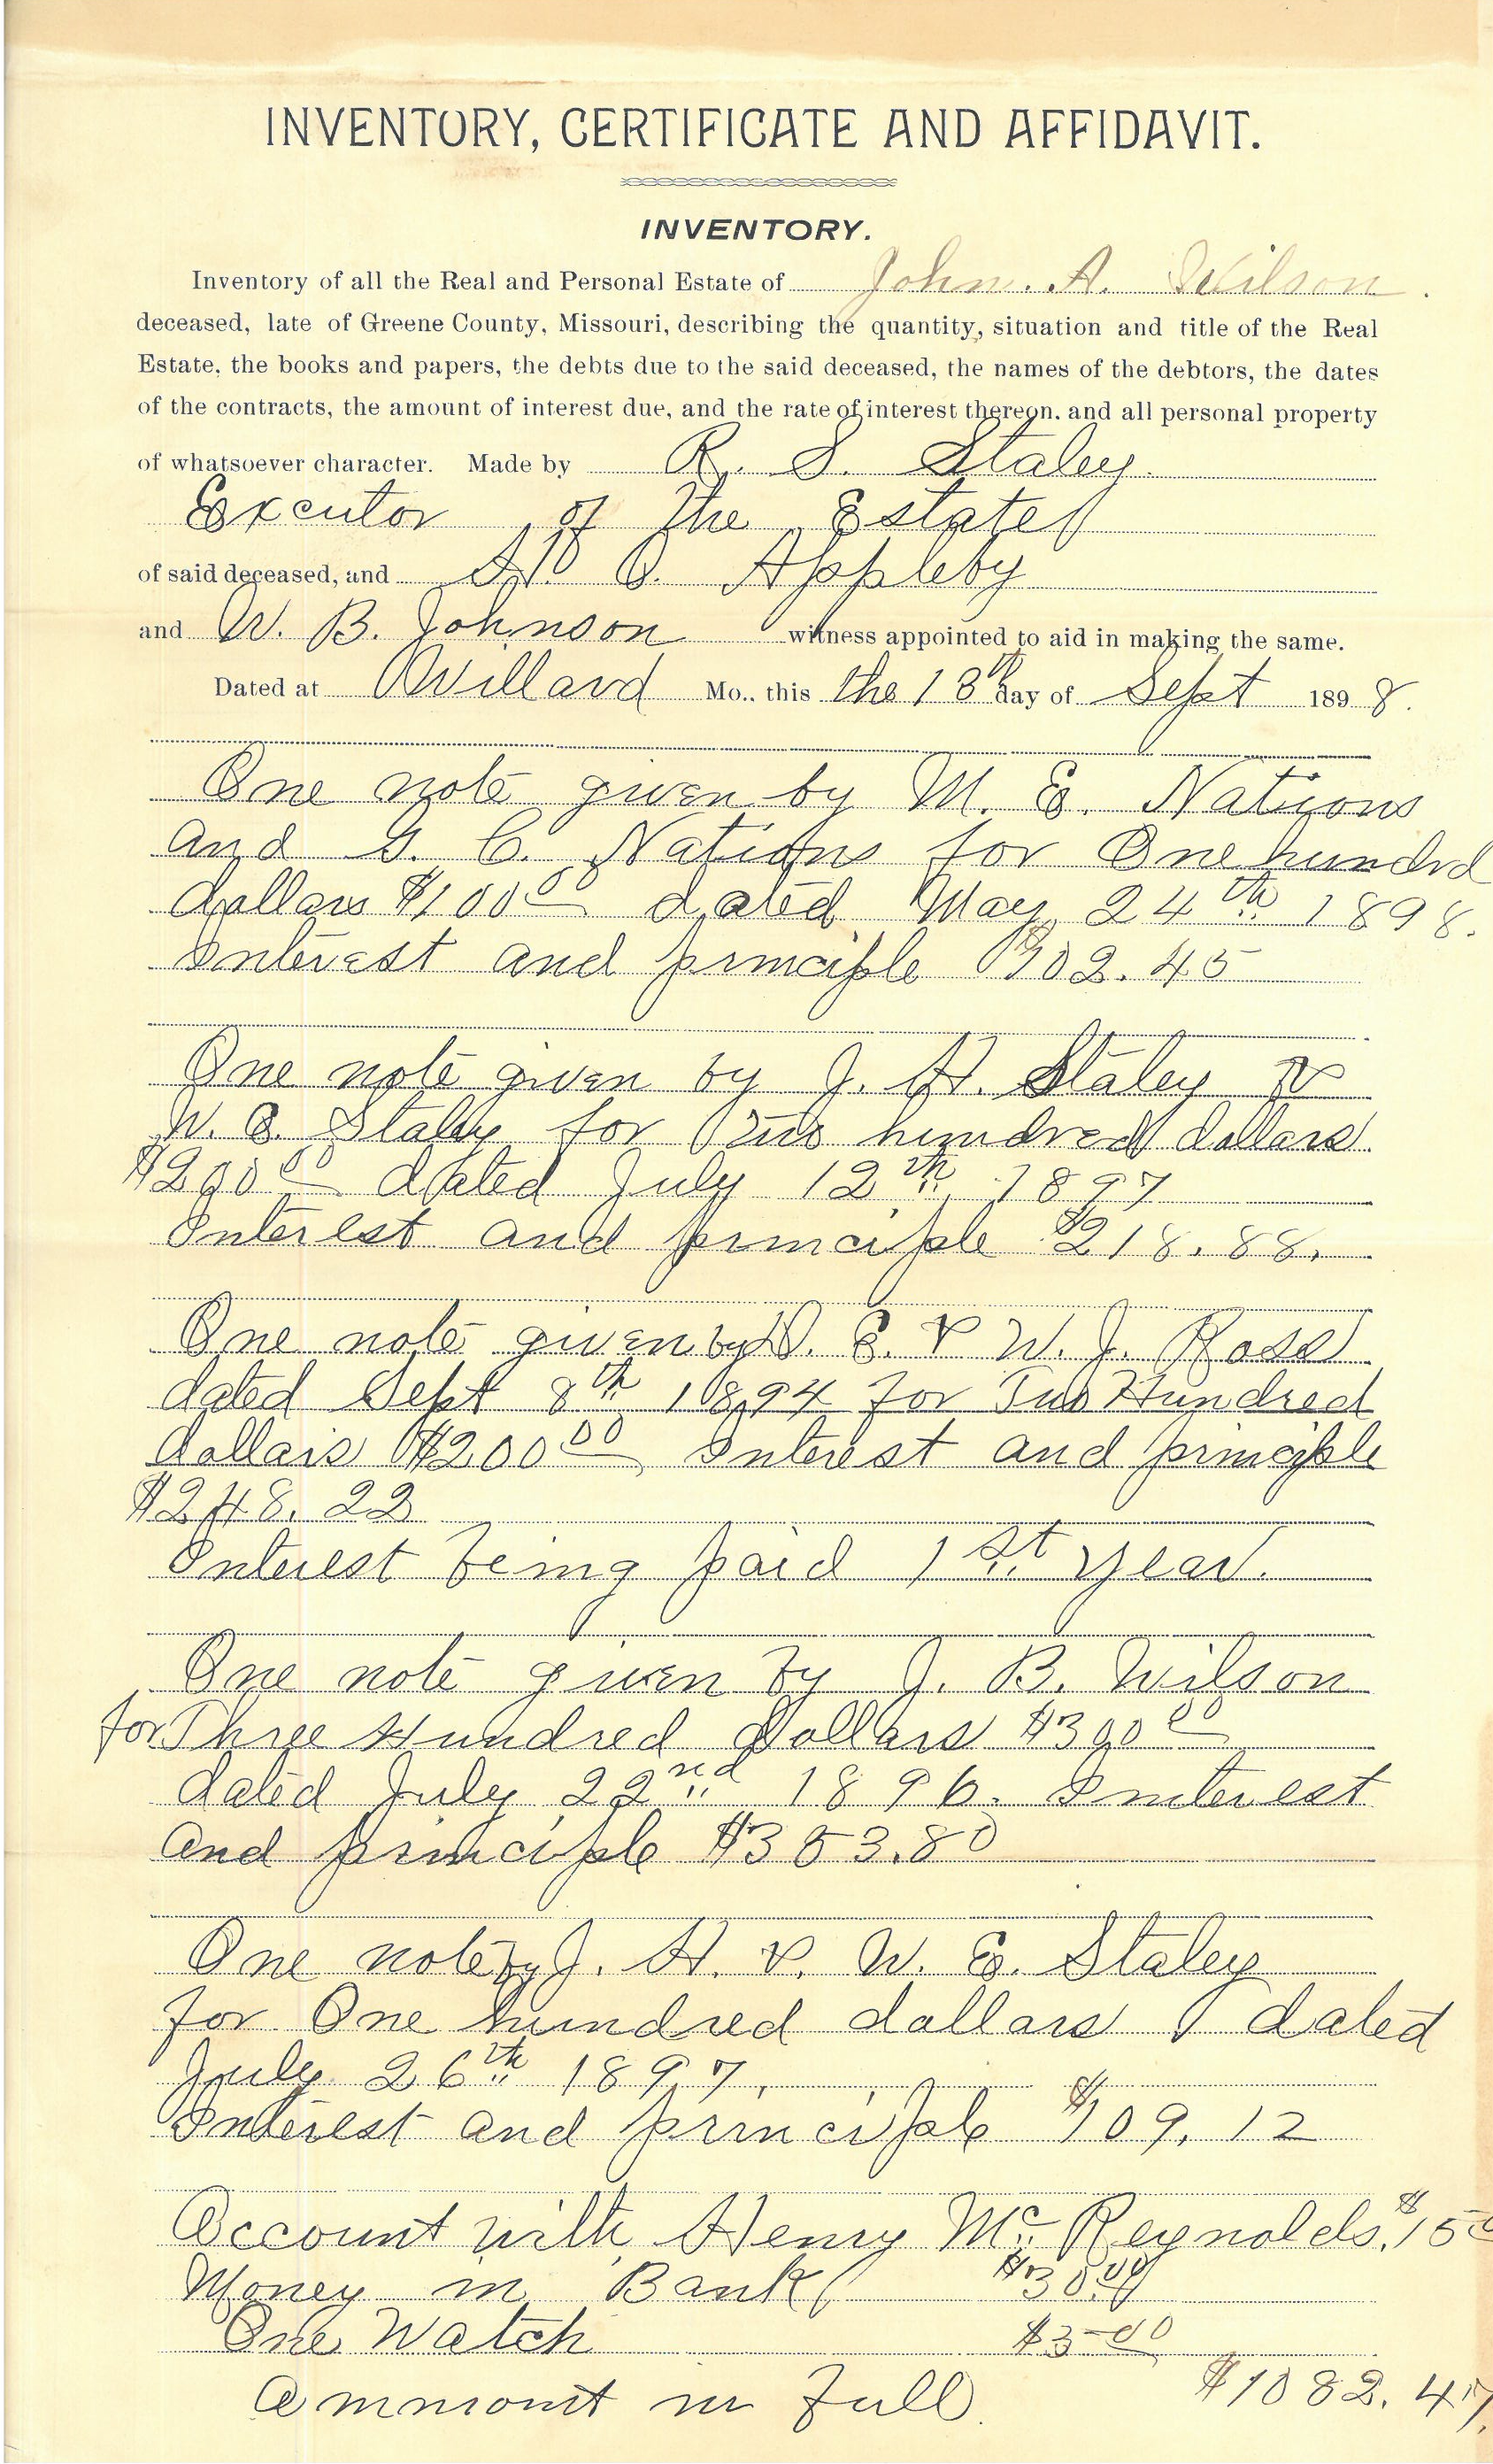 INVENTORY, CERTIFICATE AND AFFIDAVIT.
INVENTORY.
Inventory of all the Real and Personal Estate of John. A. Wilson.
deceased, late of Greene County, Missouri, describing the quantity, situation and title of the Real
Estate, the books and papers, the debts due to the said deceased, the names of the debtors, the dates
of the contracts, the amount of interest due, and the rate of interest thereon, and all personal property
of whatsoever character. Made by R. S. Staley.
Executor of the Estate
of said deceased, and O. Appleby
and W. B. Johnson witness appointed to aid in making the same.
Dated at Willard Mo., this the 13th day of Sept 1898.
One note given by M. E. Nations
and G. C. Nations for One hundrd
dollars $100 00 dated May 24th 1898.
Interest and principle $102.45
One note given by J. H. Staley &
W. E. Staley for Two hundred dollars
$200 00 dated July 12th 1897
Interest and principle $218.88.
One note given by D. E. & W. J. Ross
dated Sept 8th 1894 for Two Hundred
dollars $200 00 Interest and principle
$248.22
Interest being paid 1st year.
One note given by J. B. Wilson
for Three Hundred Dollars $300 00
dated July 22nd 1896. Interest
and principle $353.80
One note by J. H. & W. E. Staley
for One hundred dollars dated
July 26th 1897.
Interest and principle $109.12
Account with Henry McReynolds. $15 00
Money in Bank $30.00
One Watch $5 00
Ammount in full $1082.47.